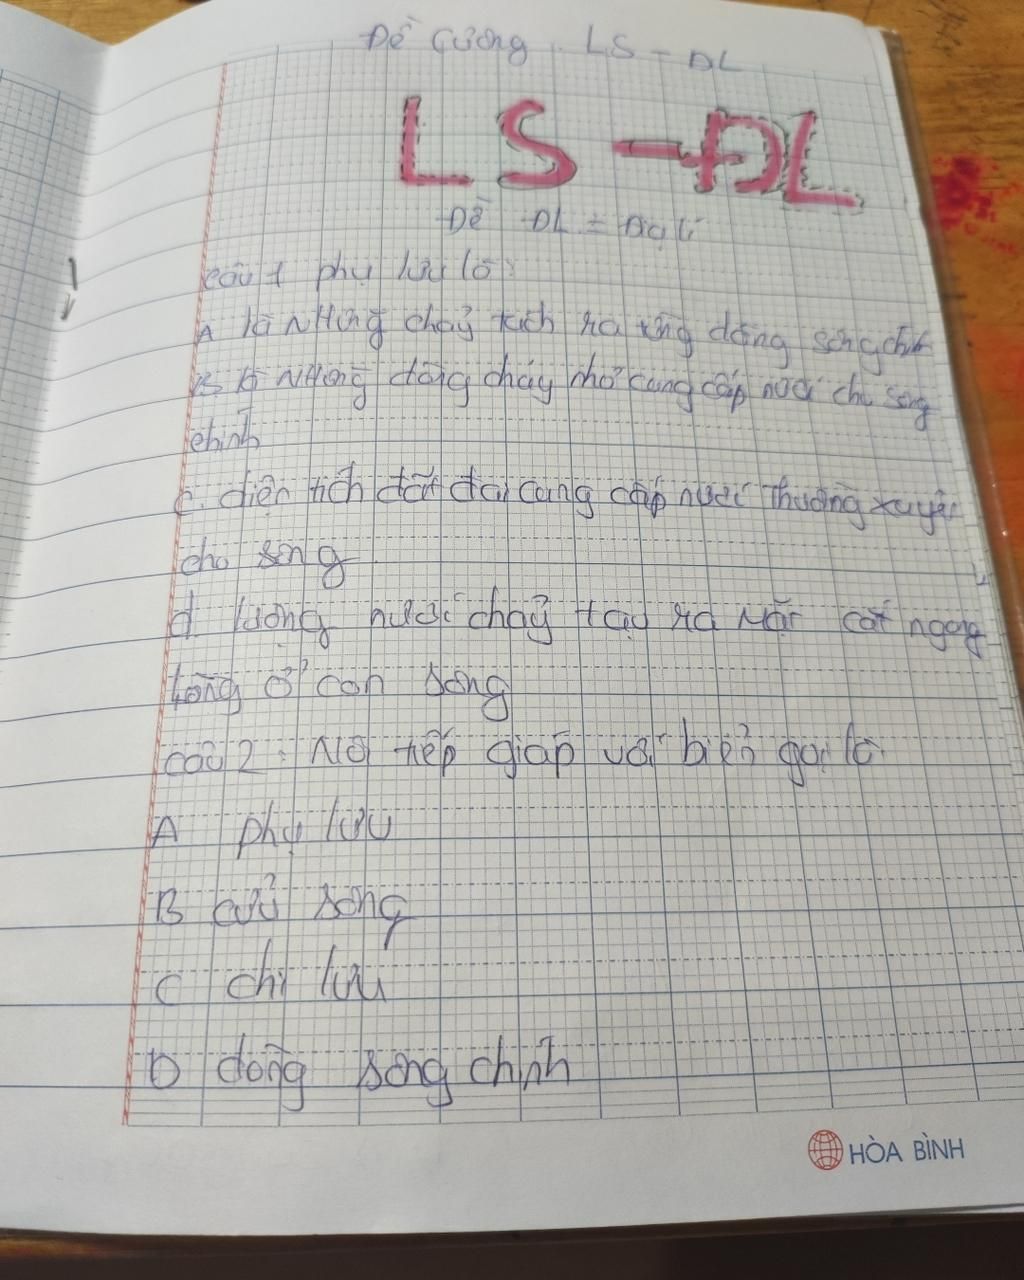 Đề Cương LS - ĐL
LS - ĐL
Đề ĐL = Địa lí
câu 1 phụ lưu là:
A là những chảy tách ra từng dòng sông chính
B là những dòng chảy nhỏ cung cấp nước cho sông
chính
C. diện tích đất đai cung cấp nước thường xuyên
cho sông
d lượng nước chảy tạo ra mặt cắt ngang
lòng ở con sông
câu 2: Nơi tiếp giáp với biển gọi là
A phụ lưu
B cửa sông
C chi lưu
D dòng sông chính
HÒA BÌNH